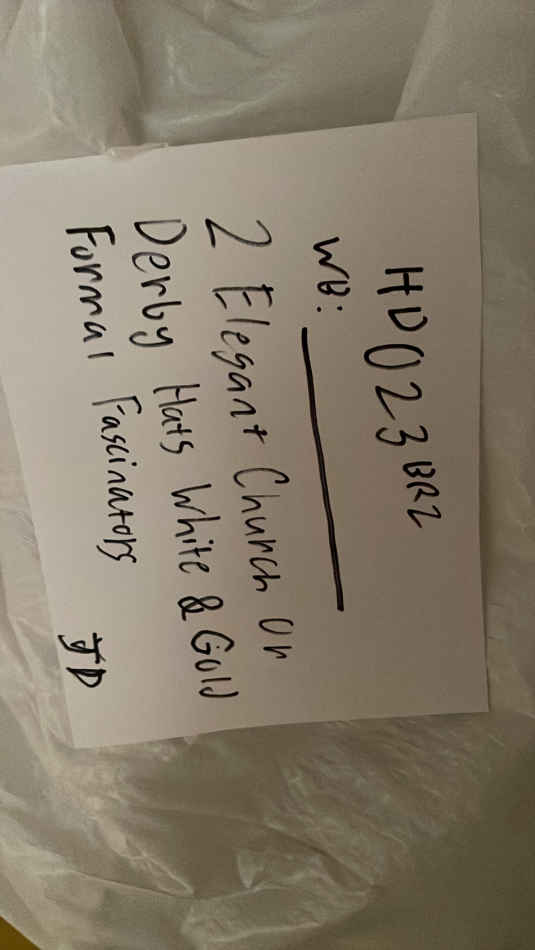 HD023BRZ
WB: ________
2 Elegant Church or
Derby Hats White & Gold
Formal Fascinators
JD